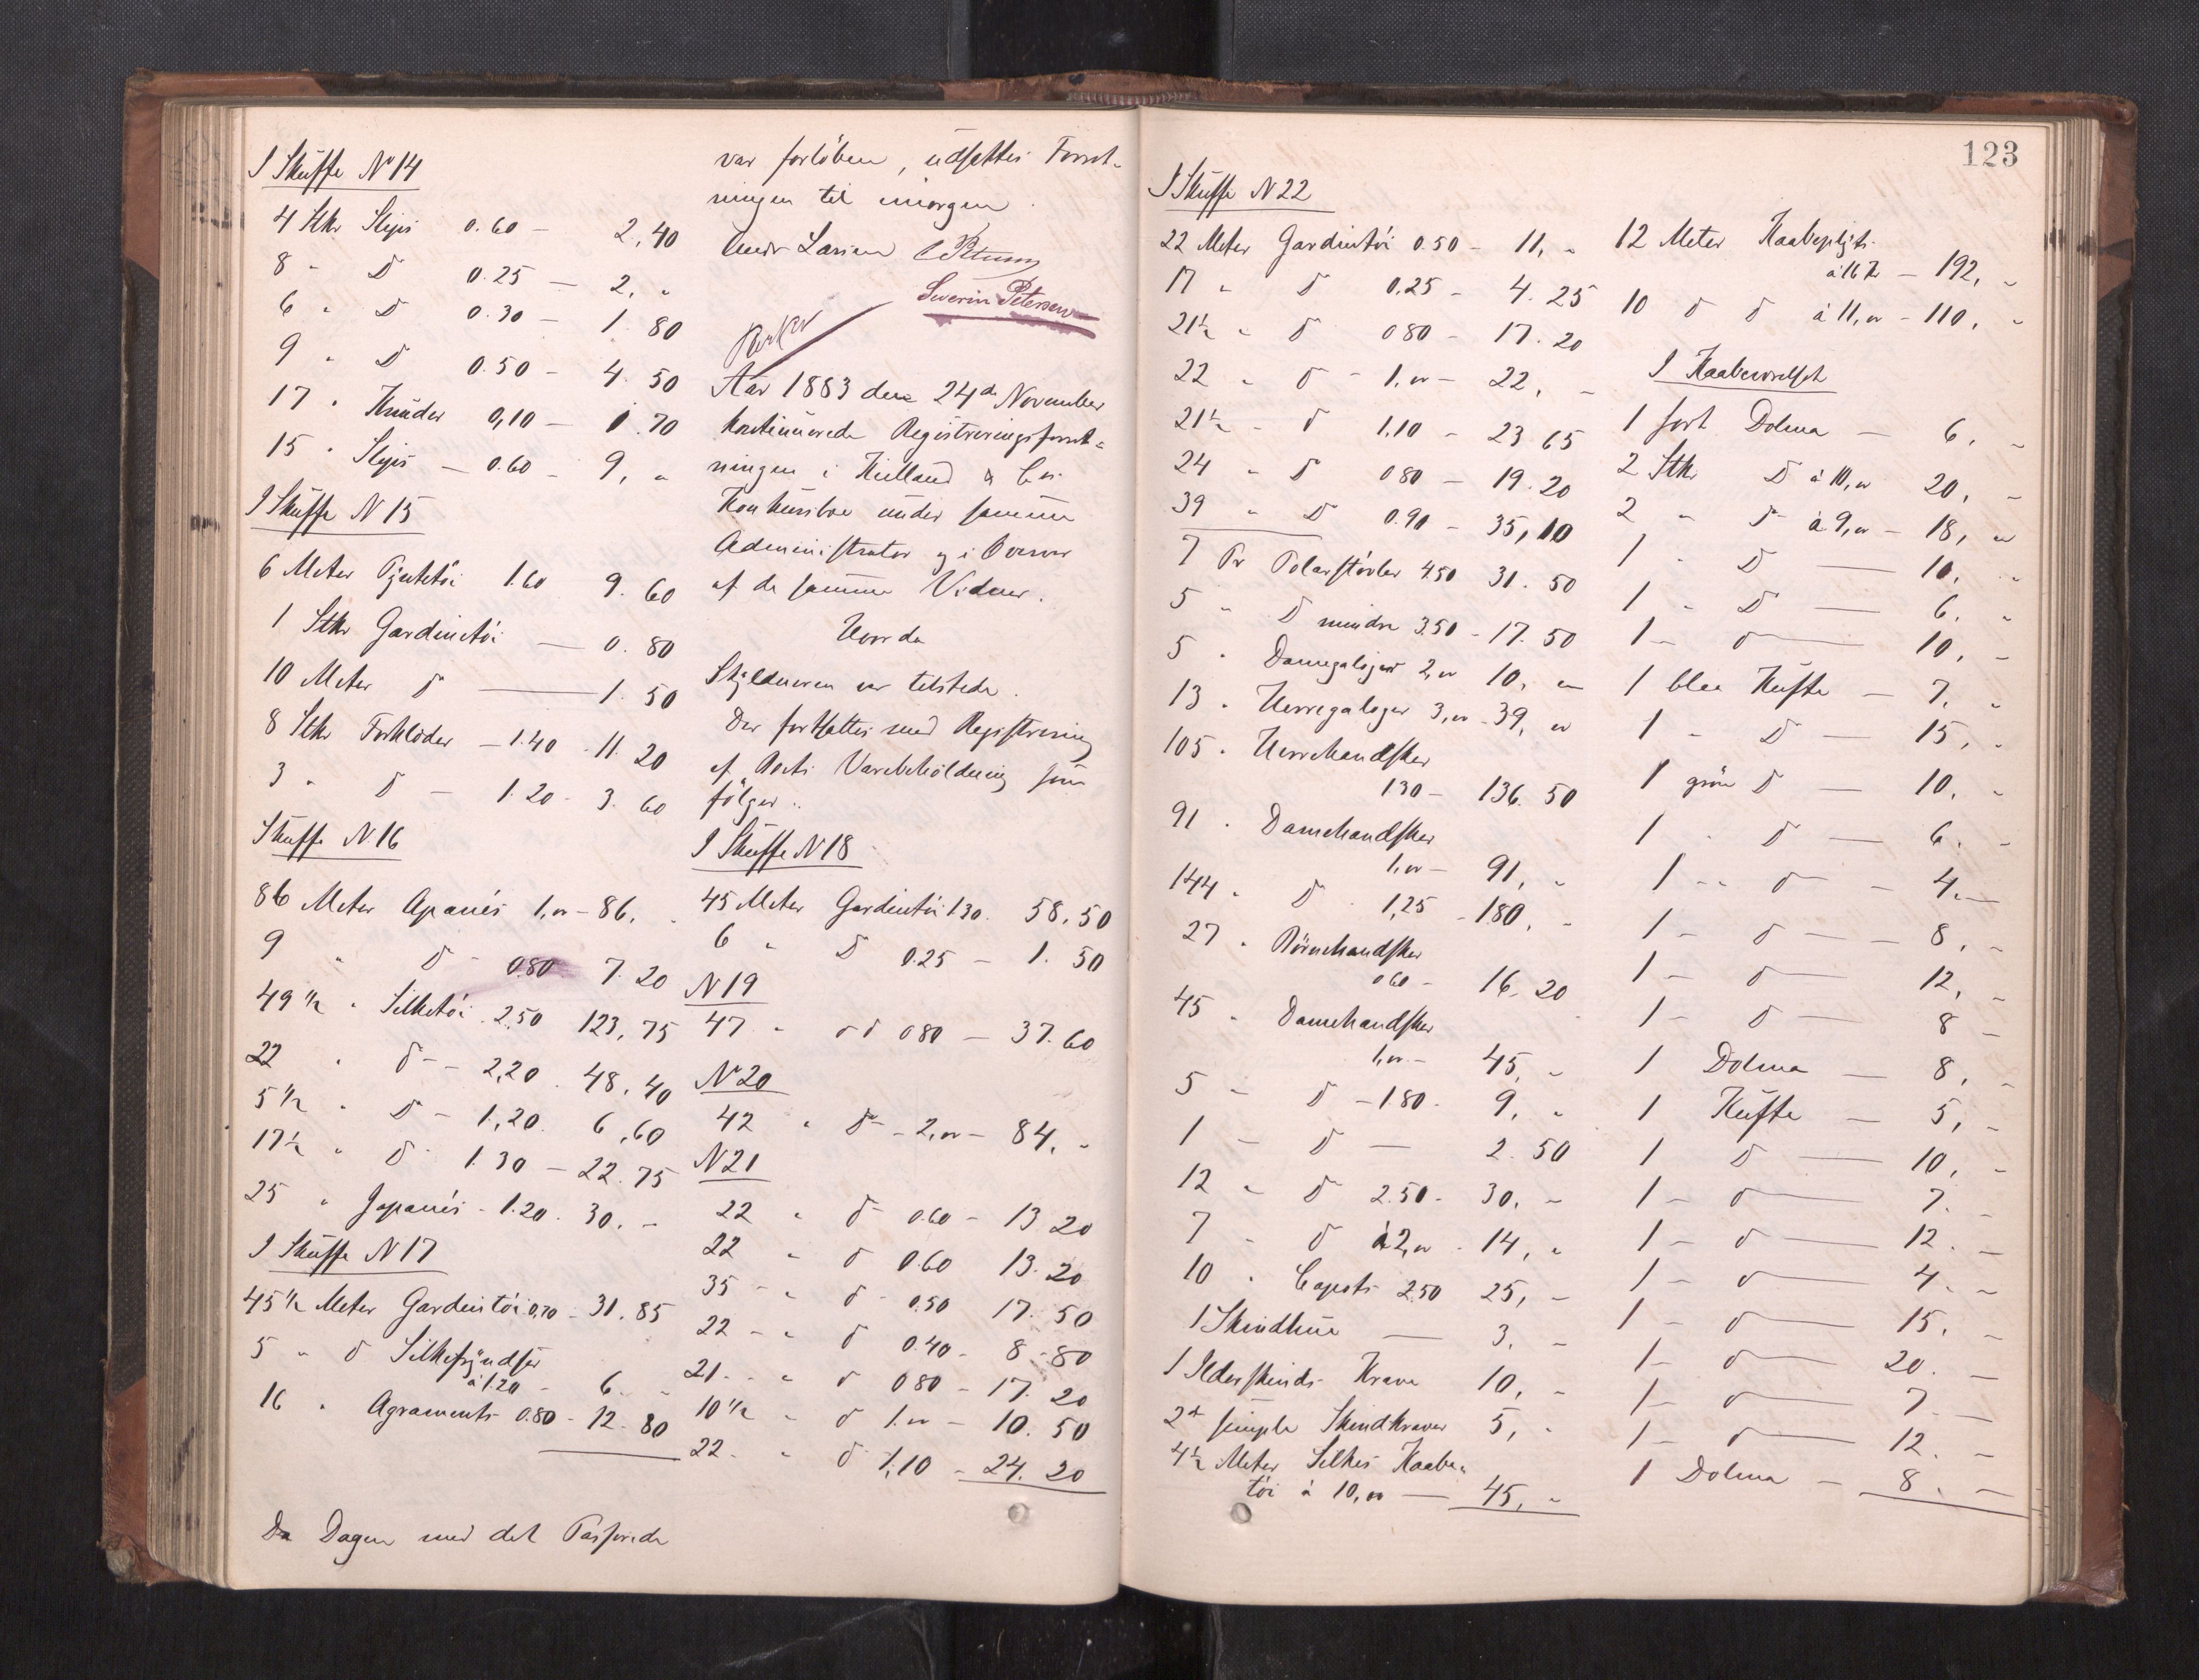 I Skuffe No 14
4 Stkr Slips 0.60 — 2,40
8 " D 0.25 — 2, "
6 " D 0.30 — 1.80
9 " D 0.50 — 4.50
17 " Knuder 0,10 — 1.70
15 " Slips — 0.60 — 9, "
I Skuffe N 15
6 Meter 1.60 9.60
1 Stkr Gardintöi — 0.80
10 Meter D — 1.50
8 Stkr Forklæder — 1.40 - 11.20
3 " D — 1.20 - 3.60
Skuffe N 16
86 Meter 1,00 - 86, "
9 " D 0.80 7.20
49 1/2 " Silketöi 2.50 123,75
22 " D — 2,20 . 48,40
5 1/2 " D — 1,20 6,60
17 1/2 " D 1.30 — 22.75
25 " Japanés - 1.20 . 30. —
I Skuffe N 17
45 1/2 Meter Gardintöi 0,70 - 31.85
5 " D Silkefrÿndser
à 1.20 — 6. "
16 " Agraments 0.80 - 12.80
Da Dagen med det Passerede
var forlöben, udsattes Forret-
ningen til imorgen.
Andr Larsen
Severin Petersen
Aar 1883 den 24de November
kontinuerede Registreringsforret=
ningen i Kielland & Co's
Konkursbo under samme
Administrator og i Overvær
af de samme Vidner.
Hvorda
Skyldneren var tilstede.
Der fortsattes med Registrering
af Boets Varebeholdning som
fölger:
I Skuffe N 18
45 Meter Gardintöi 1.30 . 58.50
6 " D 0.25 — 1.50
N 19
47 " D D 0 80 — 37.60
No 20
42 " D — 2,00 — 84, "
N 21
22 " D 0.60 — 13 20
22 " D 0.60 13.20
35 — " D 0.50 17.50
22 — " D 0.40 — 8-80
21 - " D 0 80 — 17.20
10 1/2 " D 1.00 — 10.50
22 - " D 1,10 — 24.20
123
I Skuffe N 22
22 Meter Gardintöi 0.50 — 11, "
17 " D 0.25 — 4.25
21 1/2 " D 0 80 — 17.20
22 " D — 1,00 — 22, —
21 1/2 — D 1,10 — 23 65
24 " D 0 80 — 19.20
39 " D 0.90 — 35,10
7 Pr Polarstövler 4.50 31.50
5 " D mindre 3.50 - 17.50
5 " Damegalojer 2,00 10, "
13 " Herregalojer 3,00 - 39, "
105 " Herrehandsker
1.30 — 136.50
91 " Damehandsker
1,00 — 91, "
144 " D 1,25 - 180, "
27 " Börnehandsker
0 60 — 16.20
45 " Damehandsker
1,00 — 45, "
5 — D — 1.80 . 9, "
1 — D — 2.50
12 " D 2.50 - 30, "
7 " D à 2,00 . 14, "
10 " Capots 2.50 25, —
1 Skindhue — 3. —
1 Ilderskinds Krave 10, —
2 simple Skindkraver 5, "
4 1/2 Meter Silkes Kaabe-
töi à 10,00 — 45, "
12 Meter
à 16 Kr — 192, "
10 D D à 11,00 — 110, "
I Kaabeværelset
1 sort Dolma — 6, "
2 Stkr D à 10,00 20, —
2 " D à 9,00 — 18, "
1 " D — 10, "
1 " D — 6, "
1 — D — 10, —
1 blaa Kufte — 7, "
1 " D — 15, "
1 grön D — 10, "
1 " D — 6. "
1 " D — 4. —
1 — D — 8, —
1 — D — 12, —
1 — D — 8 —
1 Dolma — 8, —
1 Kufte — 5, —
1 D — 10, —
1 — D — 7. —
1 — D — 12. —
1 — D — 4. —
1 — D — 15. —
1 — D — 20. —
1 — D — 7 —
1 — D — 12. —
1 Dolma — 8. —